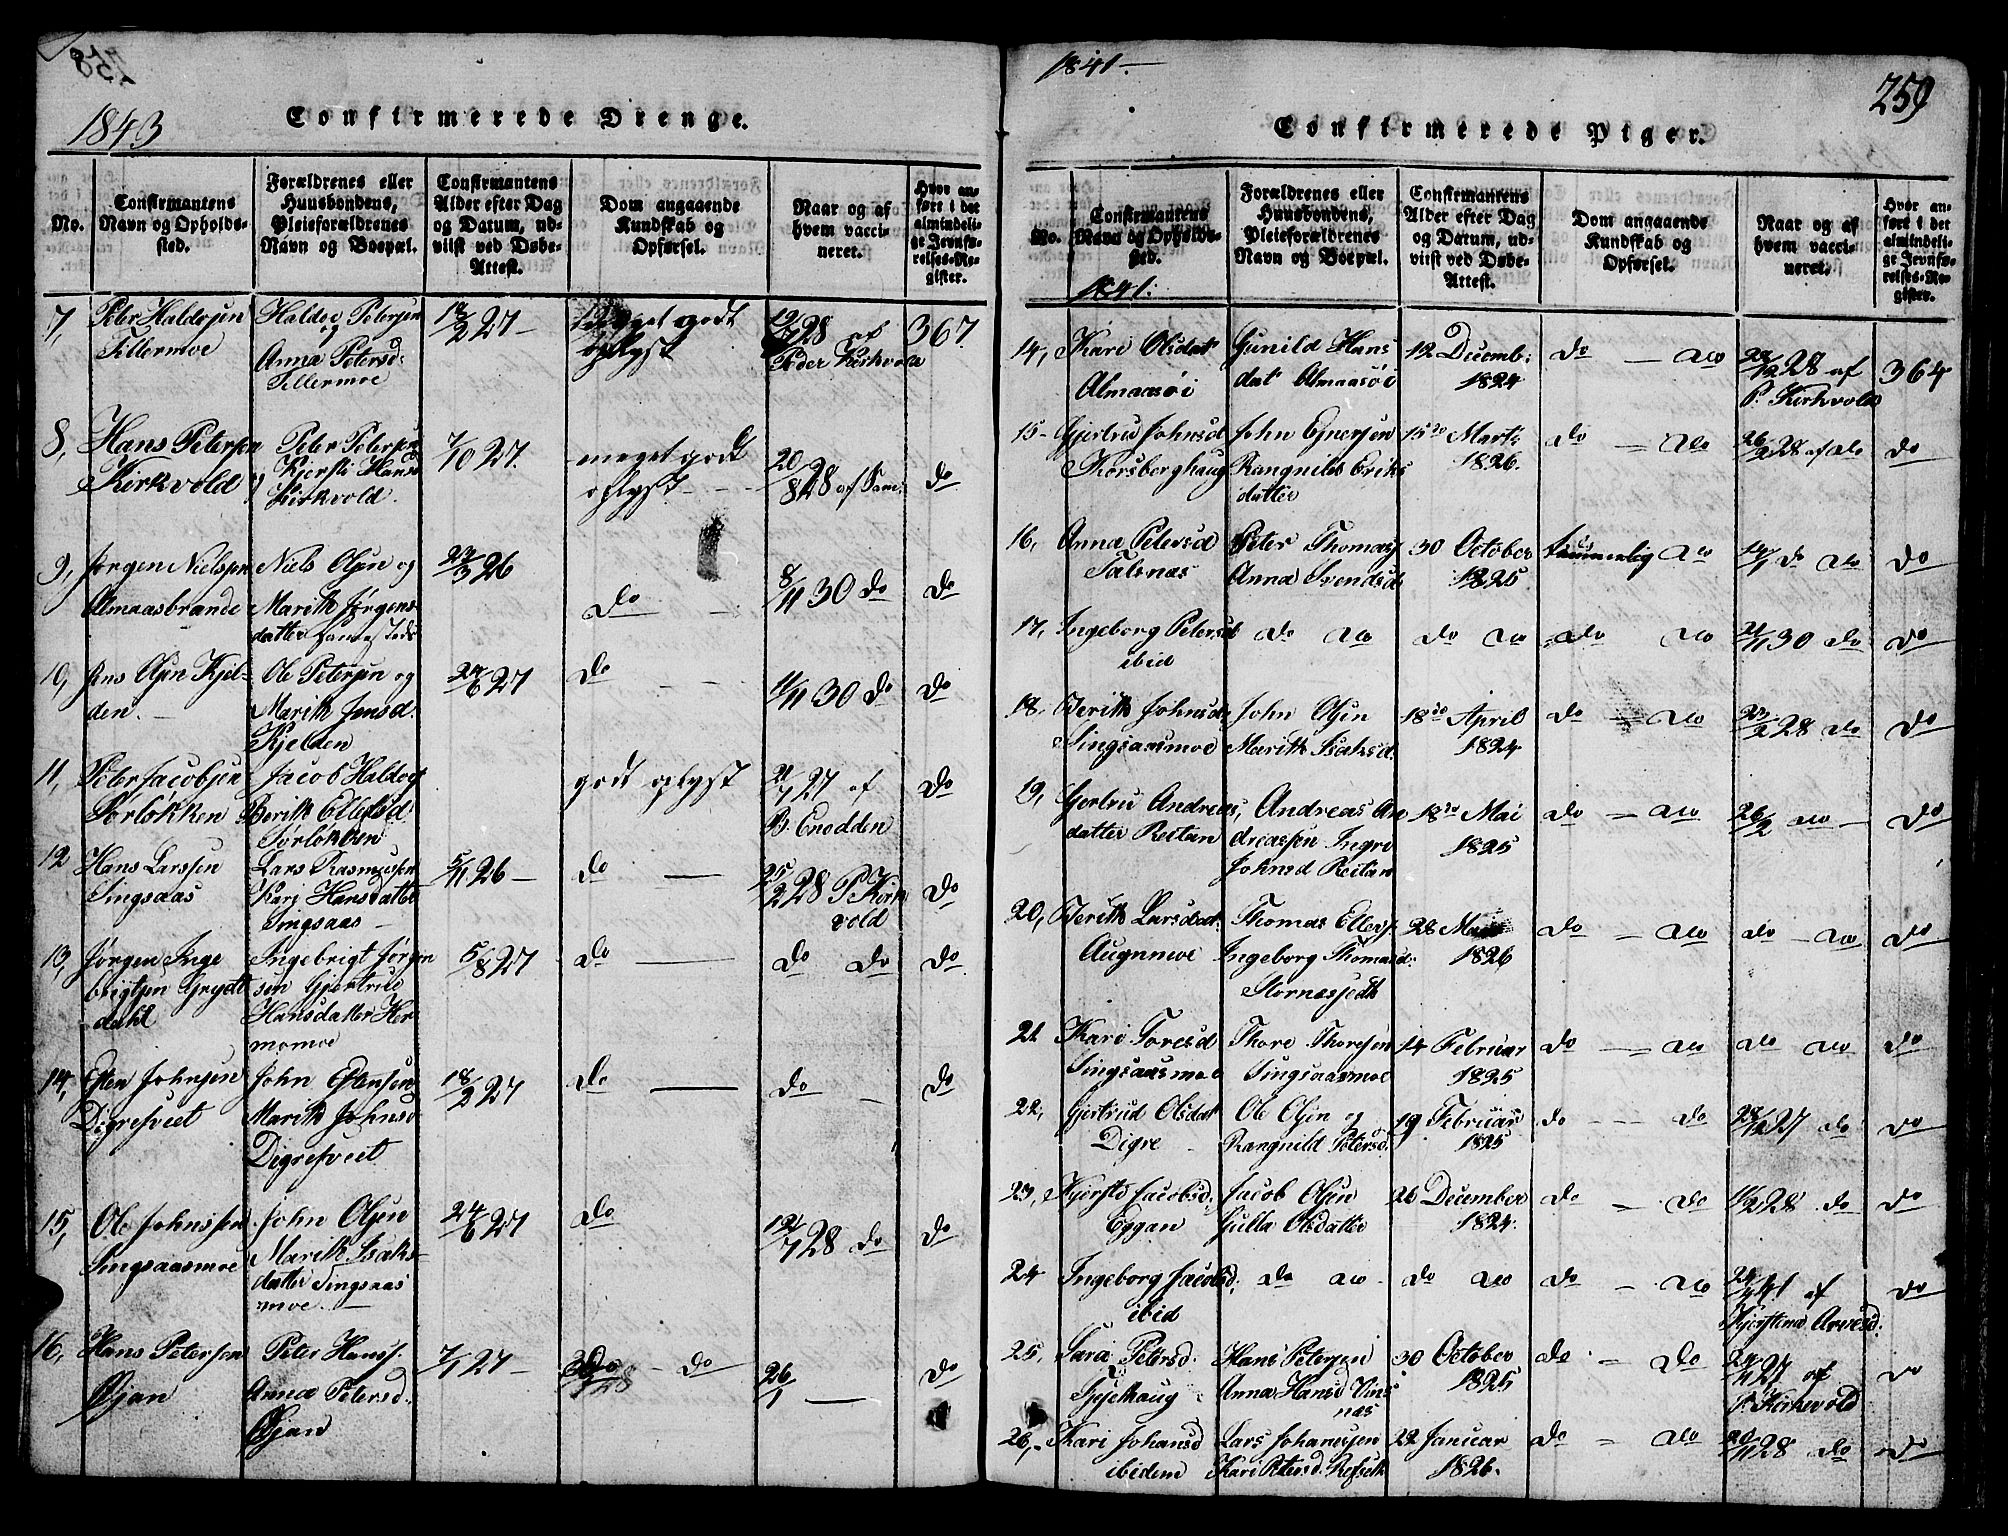 258
1843
Confirmerede Drenge.
No.
Confirmantens
Navn og Opholds-
sted.
Forældrenes eller
Huusbondens,
Pleieforældrenes
Navn og Boepæl.
Confirmantens
Alder efter Dag
og Datum, ud-
viist ved Døbe-
Attest.
Dom angaaende
Kundskab og
Opførsel.
Naar og af
hvem vacci-
neret.
Hvor an-
føre i det
almindeli-
ge Jevnfø-
relses-Re-
gister.
7, Peter Haldosen Haldoe Petersen 18/2 27 – meget godt 19/7 28 af 367.
Fillermoe og oplyst Peder Kirkvold
Anna Petersd:
Fillermoe
8, Hans Petersen Peter Petersen 7/10 27. meget godt 20/8 28 af Sam: do
Kirkvold Kjersti Hansd oplyst
Kirkvold.
9, Jørgen Nielsen Niels Olsen og 23/3 26 do 8/11 30 do do
Almaasbrande Marith Jørgens-
datter
10, Jens Olsen Kjel- Ole Petersen og 24/6 27 do 11/11 30 do do
den. Marith Jensd.
Kjelden
11, Peter Jacobsen Jacob Haldos godt oplyst 21/7 27 af do
Sørløkken Berith Ellefsd B. Enodden
Sørløkken
12 Hans Larssen Lars Rasmussen 5/11 26 – do 25/2 28 P. Kirk- do
Singsaas Kari Hansdatter vold
Singsaas
13, Jørgen Inge Ingebrigt Jørgen 5/8 27 do do do do
brigtsen Grydt sen Gjertrud
dahl Hansdatter Her
momoe
14, Esten Johnsen John Estensen 18/2 27 do do do
Digresveet Marith Johnsd
Digresveet
15, Ole Johnssen John Olsen 24/6 27 do 12/7 28 do do
Singsaasmoe Marith Isaks-
datter Singsaas
moe.
16, Hans Petersen Peter Hanss. 7/1 27 – do – do 26/1 do
Øjan Anna Petersd.
Øjan
1841.
259
Confirmerede Piger.
No.
Confirmantens
Navn og Opholds-
sted.
Forældrenes eller
Huusbondens,
Pleieforældrenes
Navn og Boepæl.
Confirmantens
Alder efter Dag
og Datum, ud-
viist ved Døbe-
Attest.
Dom angaaende
Kundskab og
Opførsel.
Naar og af
hvem vacci-
neret.
Hvor an-
føre i det
almindeli-
ge Jevnfø-
relses-Re-
gister.
1841.
14, Kari Olsdat Gunild Hans 12 Decemb: do – do 28 af 364
Almaasøi dat Almaasøi 1824 P. Kirkvold
15 – Gjertru Johnsd John Ejnersen 15de Marts do = do 26/2 28 af do do
Korsberghaug Rangnild Eriks 1826.
datter
16, Anna Petersd Peter Thomass 30 October taummelig do 14/1 do do do
Talsnas Anna Svendsd 1825
17, Ingeborg Petersd do do do do do do 21/11 30 do do
ibid
18. Berith Johnsd. John Olsen 18de April do do 23/2 28 do do
Singsaasmoe Marith Isaksd. 1824
19, Gjertru Andreas, Andreas An 18de Mai do = do 26/2 do – do
datter Reitan dreassen Ingre 1825
Johnsd Reitan
20, Berith Larsdat. Thomas Ellefs 28 do = do do – do do
Augnmoe Ingeborg Thomasd: 1826
Stornessjedt
21 Kari Toresd Thore Thoresen 14 Februar do – do do do do
Singsaasmoe Singsaasmoe 1825
22, Gjertrud Olsdat Ole Olsen og 19 Februar do – – do 27 do do
Digre – Rangnild Petersd. 1825
23, Kjersti Jacobsd. Jacob Olsen 26 December do = do 11/2 28 do do
Eggan Gulla Olsdatter 1824.
24 Ingeborg Jacobsd. do do – do do do – do 41 af do
ibid Kjerstina Arvesd.
25, Sara Petersd. Hans Petersen 30 October do = do 24/11 27 af do
Anna Hansd Vins 1825 P. Kirkvold
nas
26, Kari Johansd Lars Johanesen 22 Januar do = do 20/11 28 do do
ibidem Kari Petersd. Refseth 1826.